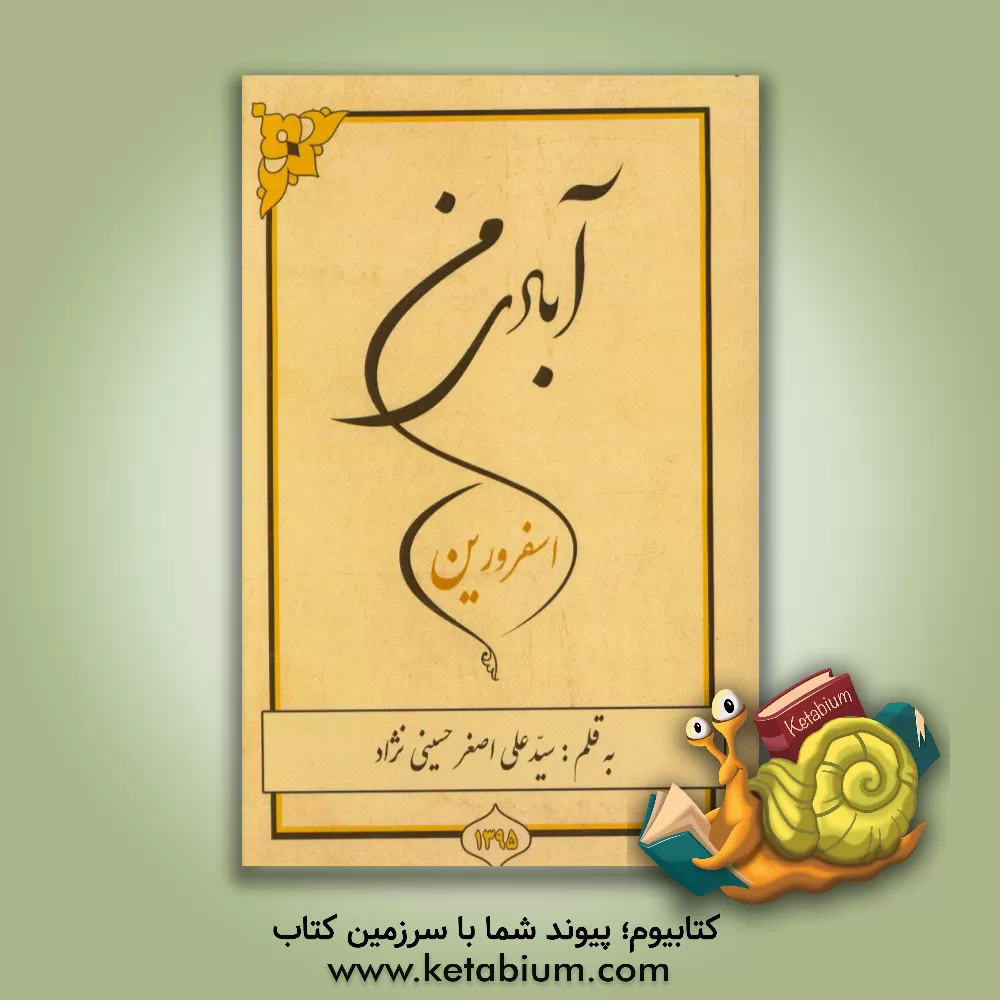 آبادی من
اسفرورین
به قلم : سیّد علی اصغر حسینی نژاد
۱۳۹۵
Ketabium
کتابیوم؛ پیوند شما با سرزمین کتاب
www.ketabium.com